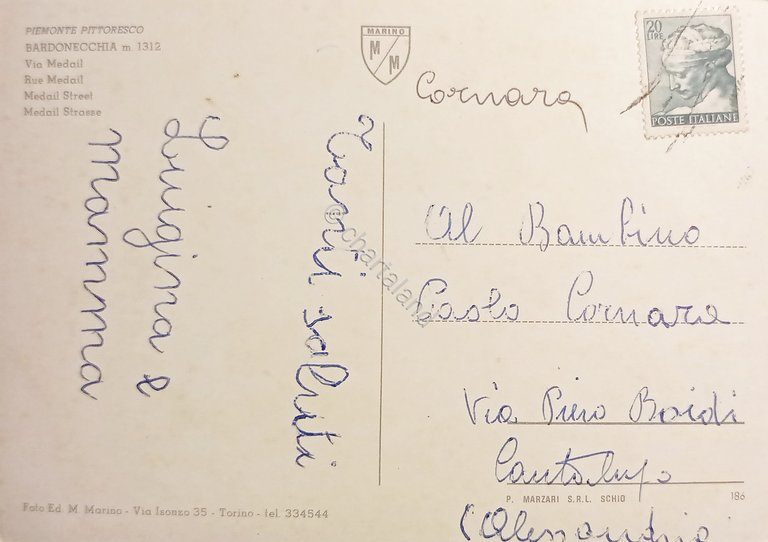 PIEMONTE PITTORESCO
BARDONECCHIA m. 1312
Via Medail
Rue Medail
Medail Street
Medail Strasse
MARINO
M M
20
LIRE
POSTE ITALIANE
Cornara
Tanti saluti
Luigina e
Mamma
Al Bambino
Paolo Cornara
Via Piero Boidi
Cantalupo
(Alessandria
© chartaland
P. MARZARI S.R.L. SCHIO
186
Foto Ed. M. Marino - Via Isonzo 35 - Torino - tel. 334544